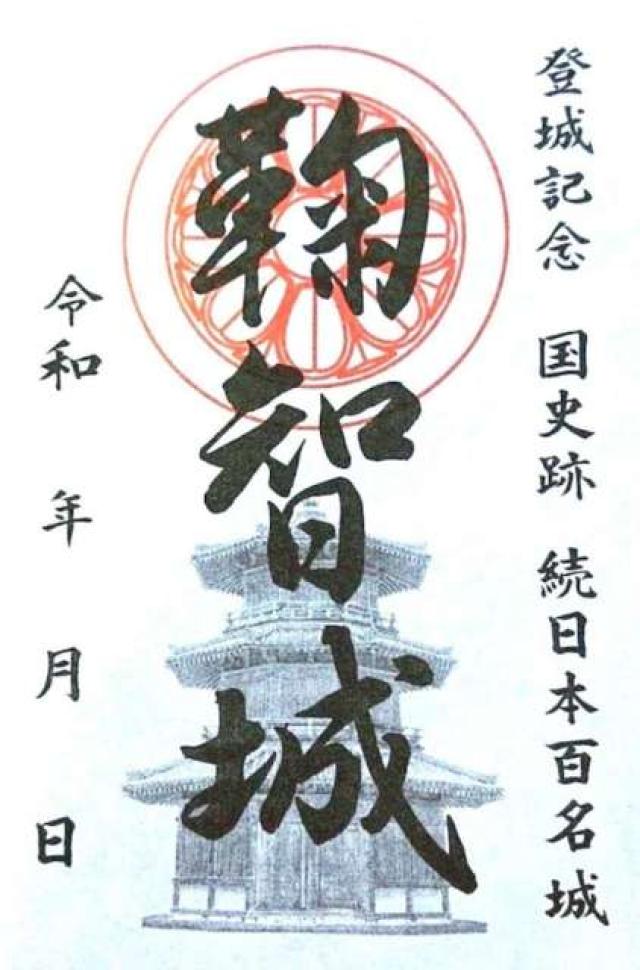 登城記念 国史跡 続日本百名城
鞠智城
令和 年 月 日